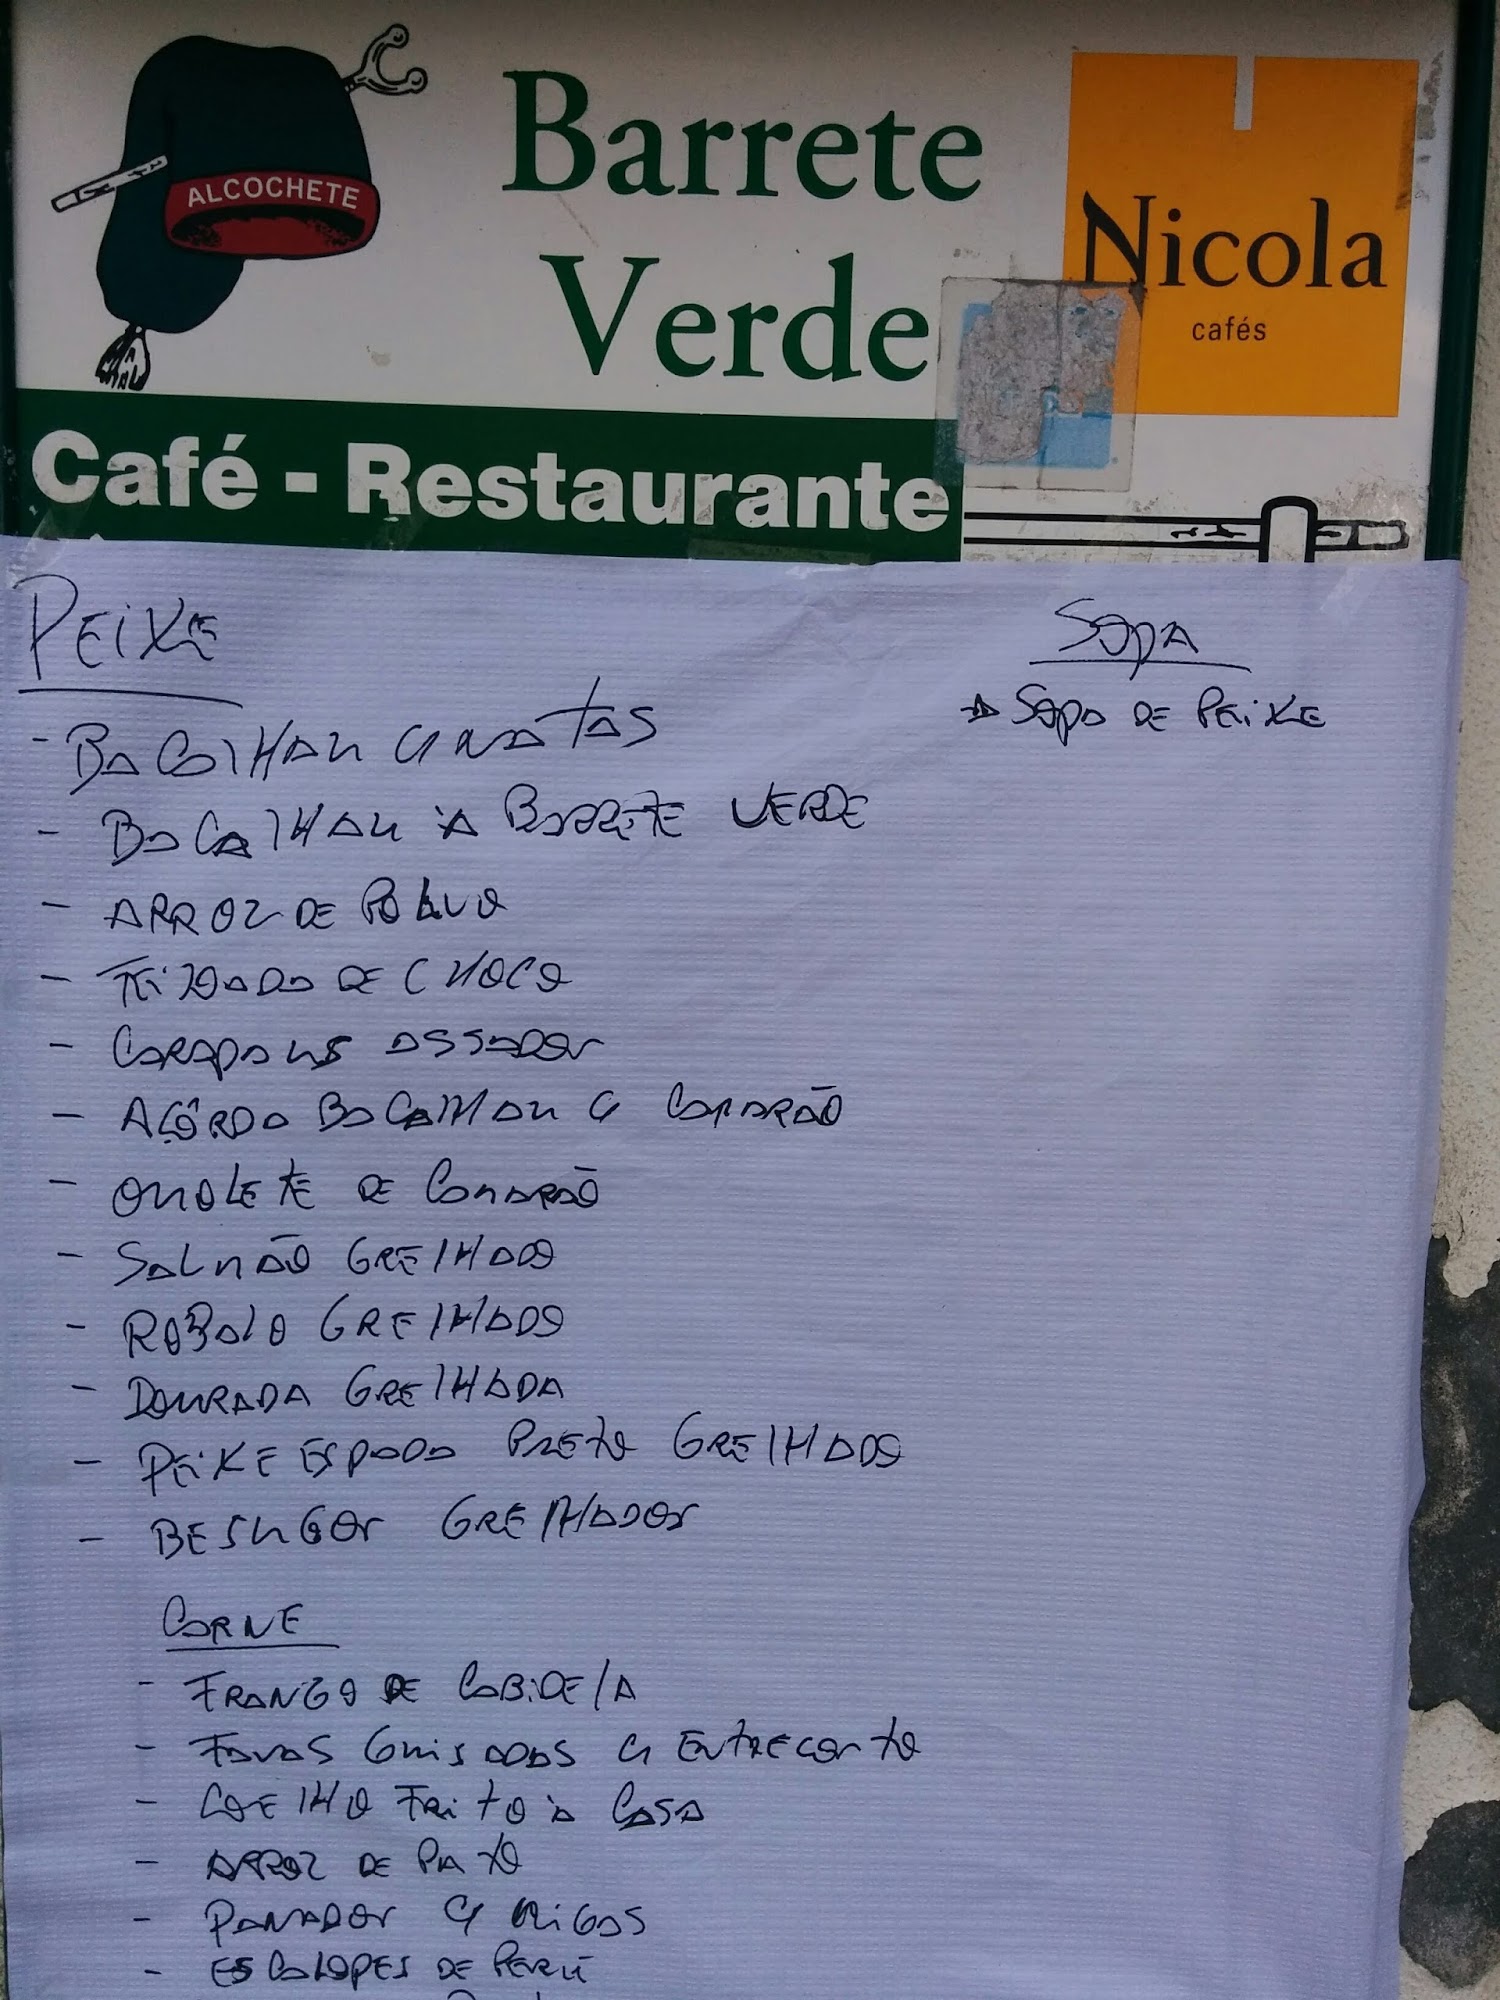 ALCOCHETE
Barrete
Verde
Nicola
cafés
Café - Restaurante
PEIXE
- BACALHAU C/ NATAS
- BACALHAU À BARRETE VERDE
- ARROZ DE POLVO
- FEIJOADA DE CHOCO
- CARAPAUS ASSADOS
- AÇÔRDA BACALHAU C/ CAMARÃO
- OMOLETE DE CAMARÃO
- SALMÃO GRELHADO
- ROBALO GRELHADO
- DOURADA GRELHADA
- PEIXE ESPADA PRETO GRELHADO
- BESUGOS GRELHADOS
CARNE
- FRANGO DE CABIDELA
- FAVAS GUISADAS C/ ENTRECOSTO
- COELHO FRITO À CASA
- ARROZ DE PATO
- PANADOS C/ MIGAS
- ESCALOPES DE PERÚ
SOPA
→ SOPA DE PEIXE